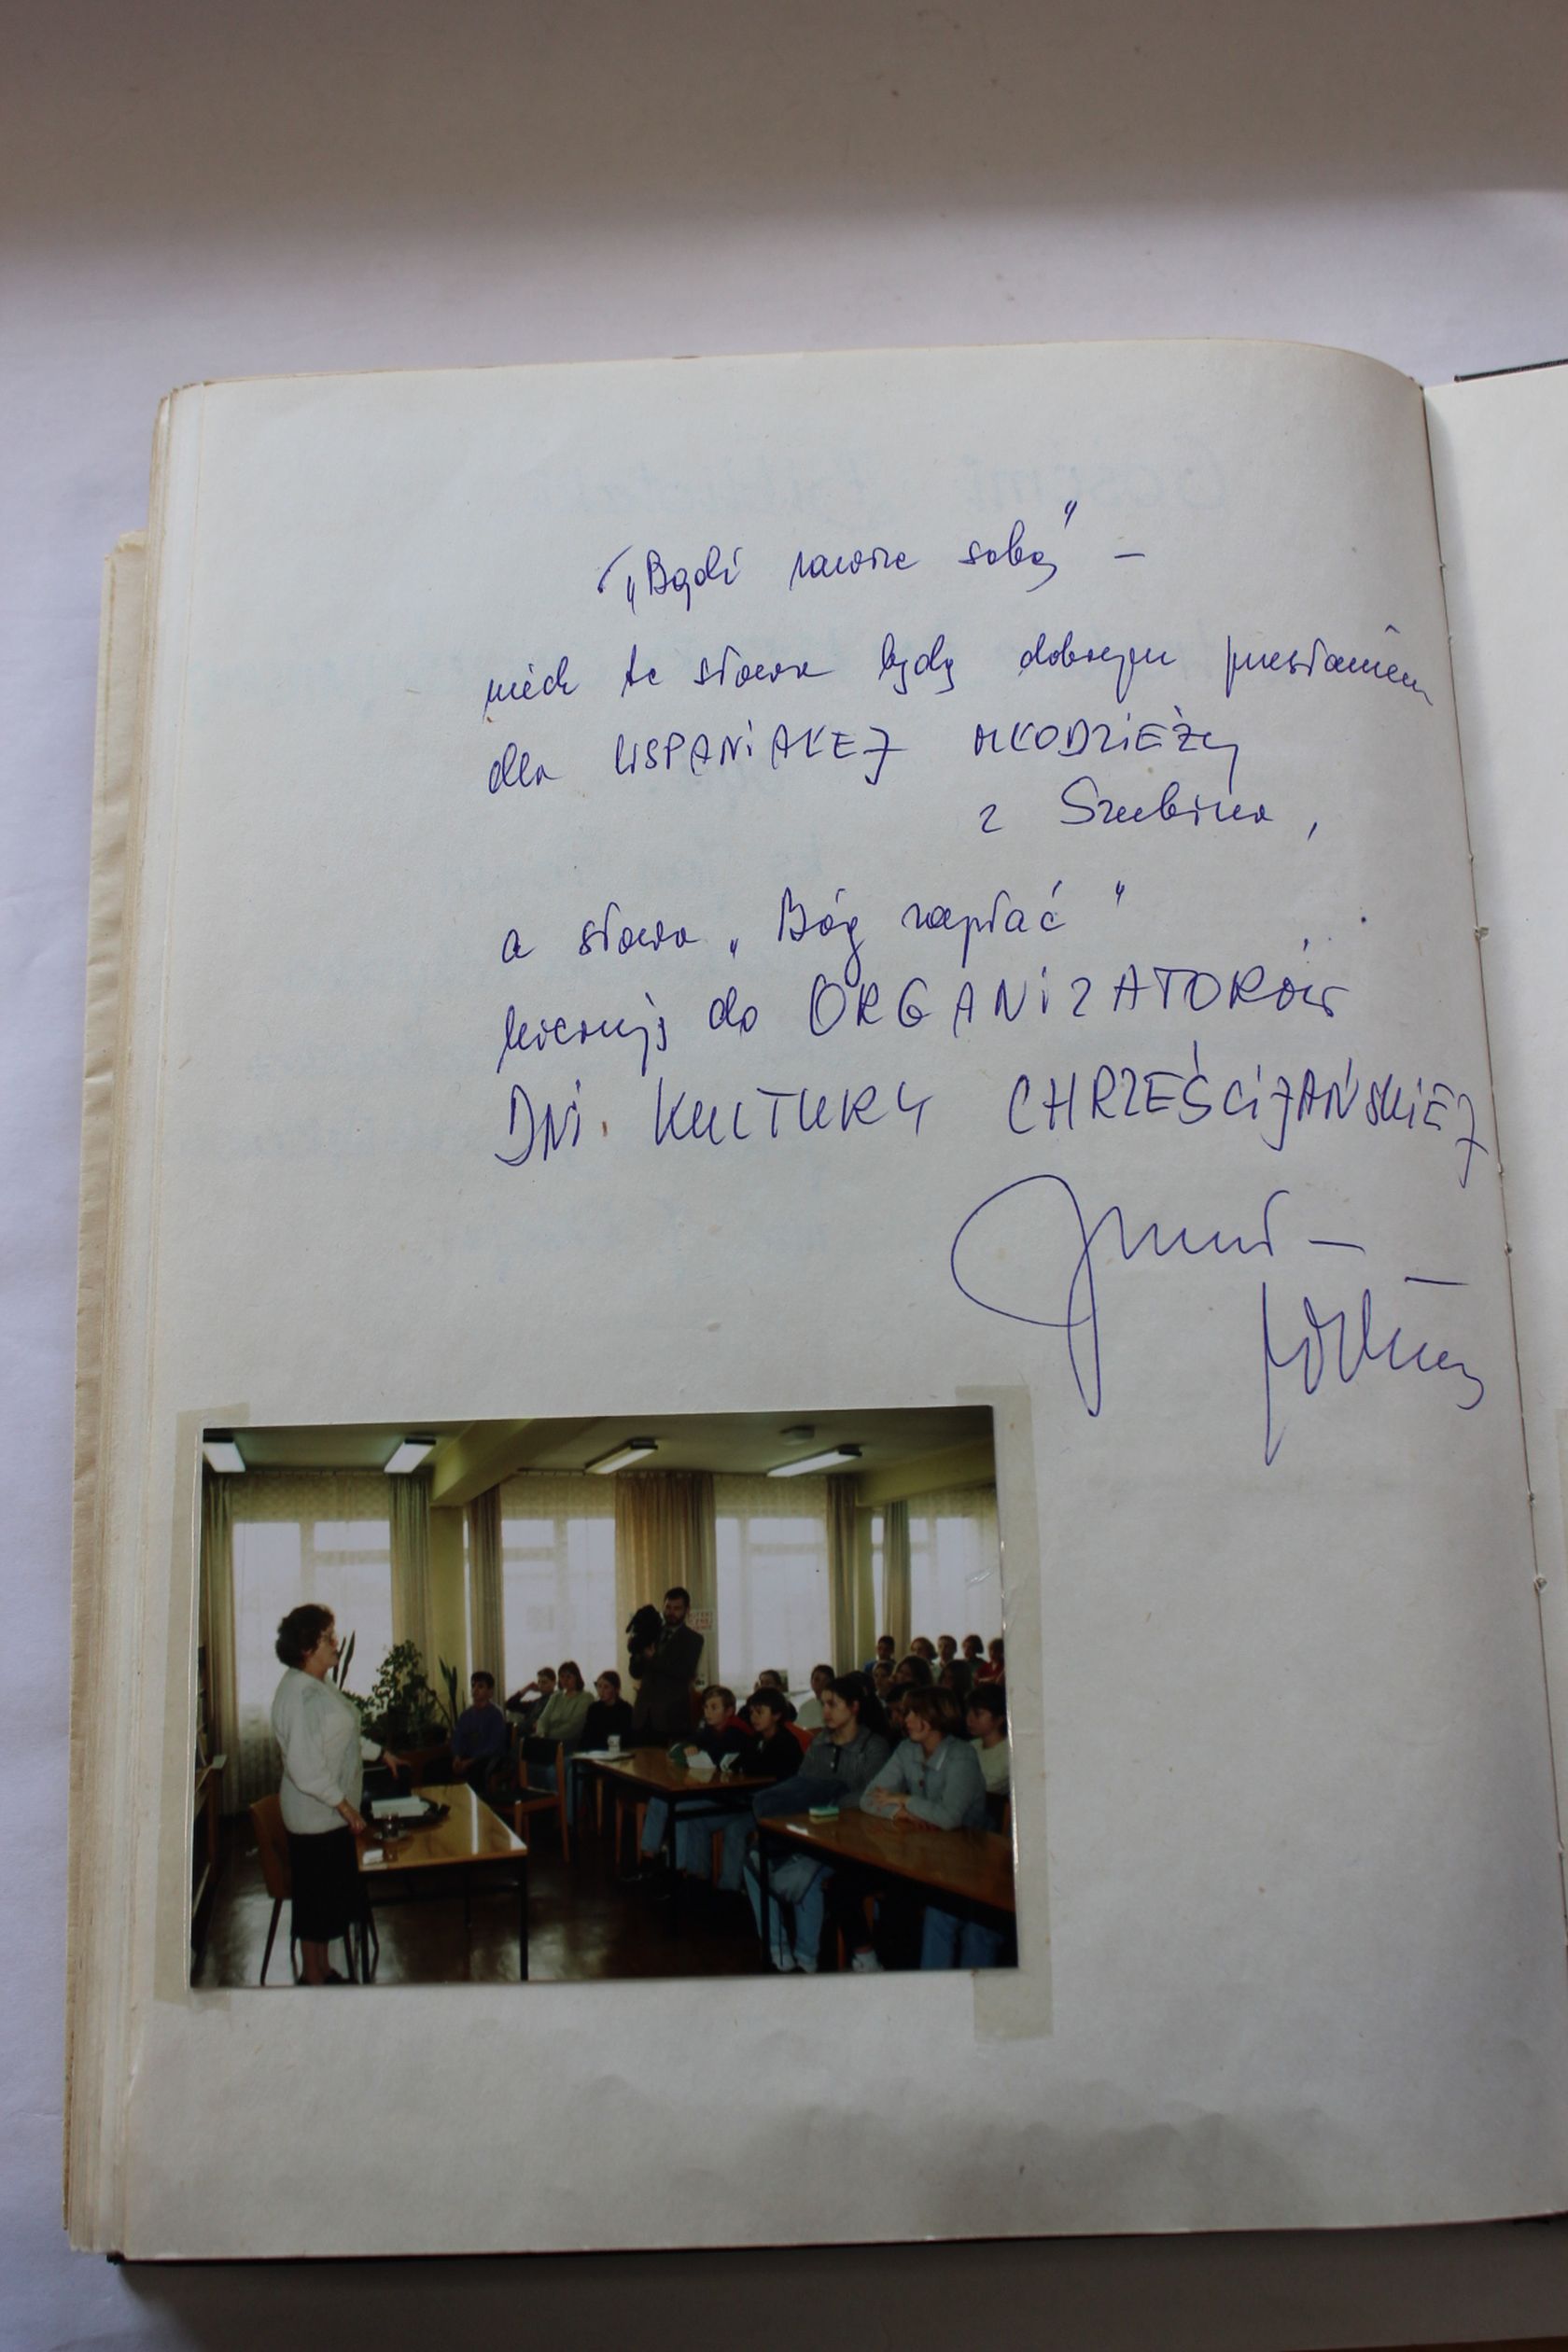 „Bądź zawsze sobą” –
niech te słowa będą dobrym przesłaniem
dla WSPANIAŁEJ MŁODZIEŻy
z Szubina,
a słowa „Bóg zapłać”
kieruję do ORGANIZATORÓW
DNI KULTURY CHRZEŚCIJAŃSKIEJ